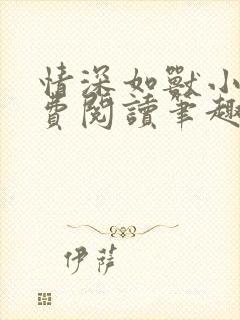 情深如獸小
費閱讀筆趣
伊薩